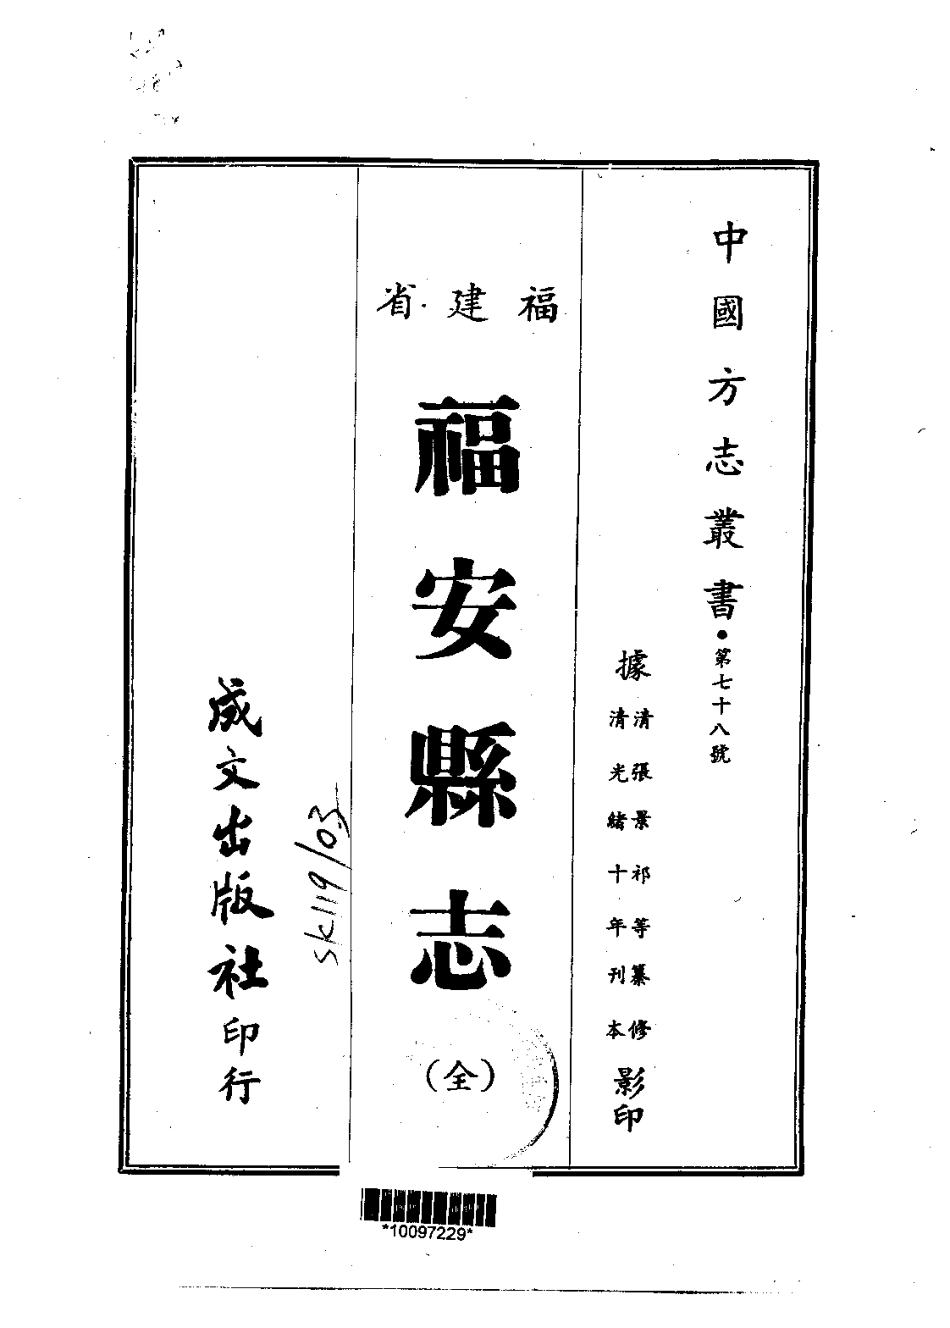 中國方志叢書・第七十八號
據
清張景祁等纂修
清光緒十年刊本
影印
福建省
福安縣志
(全)
成文出版社印行
SK119/03
*10097229*